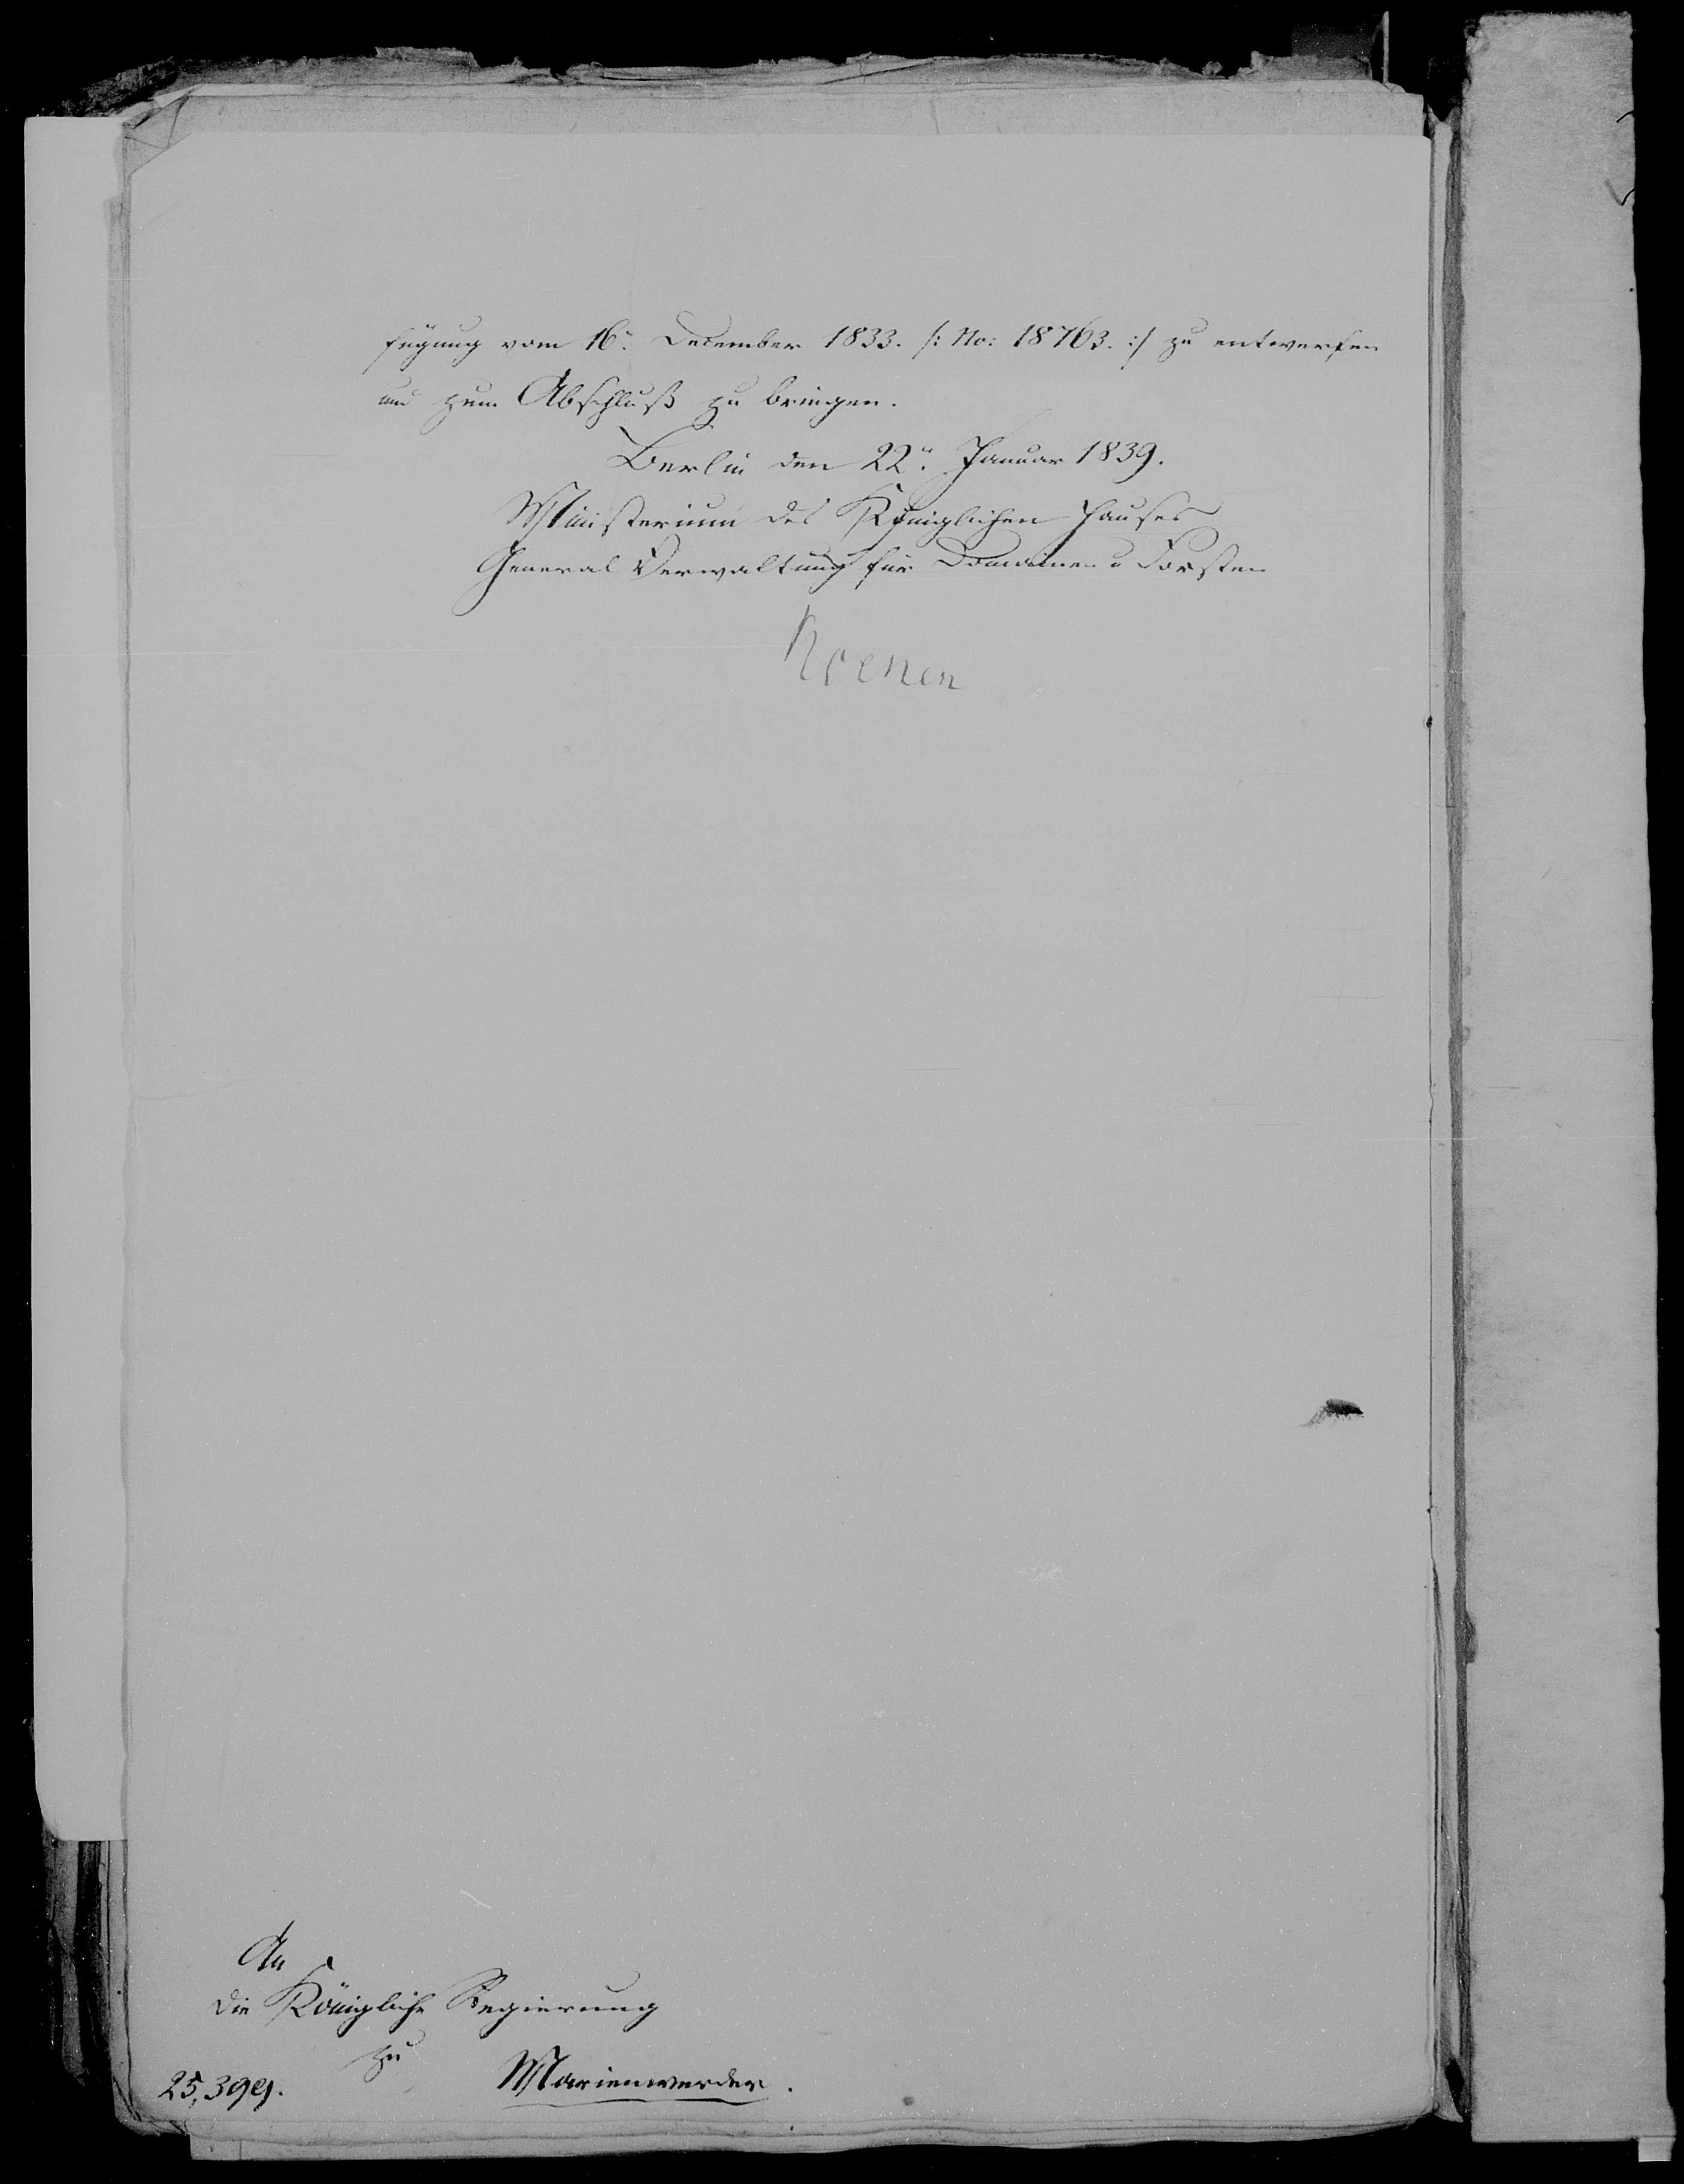 fügung vom 16ⁿ December 1833. /: No: 18763. :/ zu entwerfen
und zum Abschluß zu bringen.
Berlin den 22ⁿ Januar 1839.
Ministerium des Königlichen Hauses
General Verwaltung für Domainen u Forsten
An
die Königliche Regierung
zu
Marienwerder.
25,399.